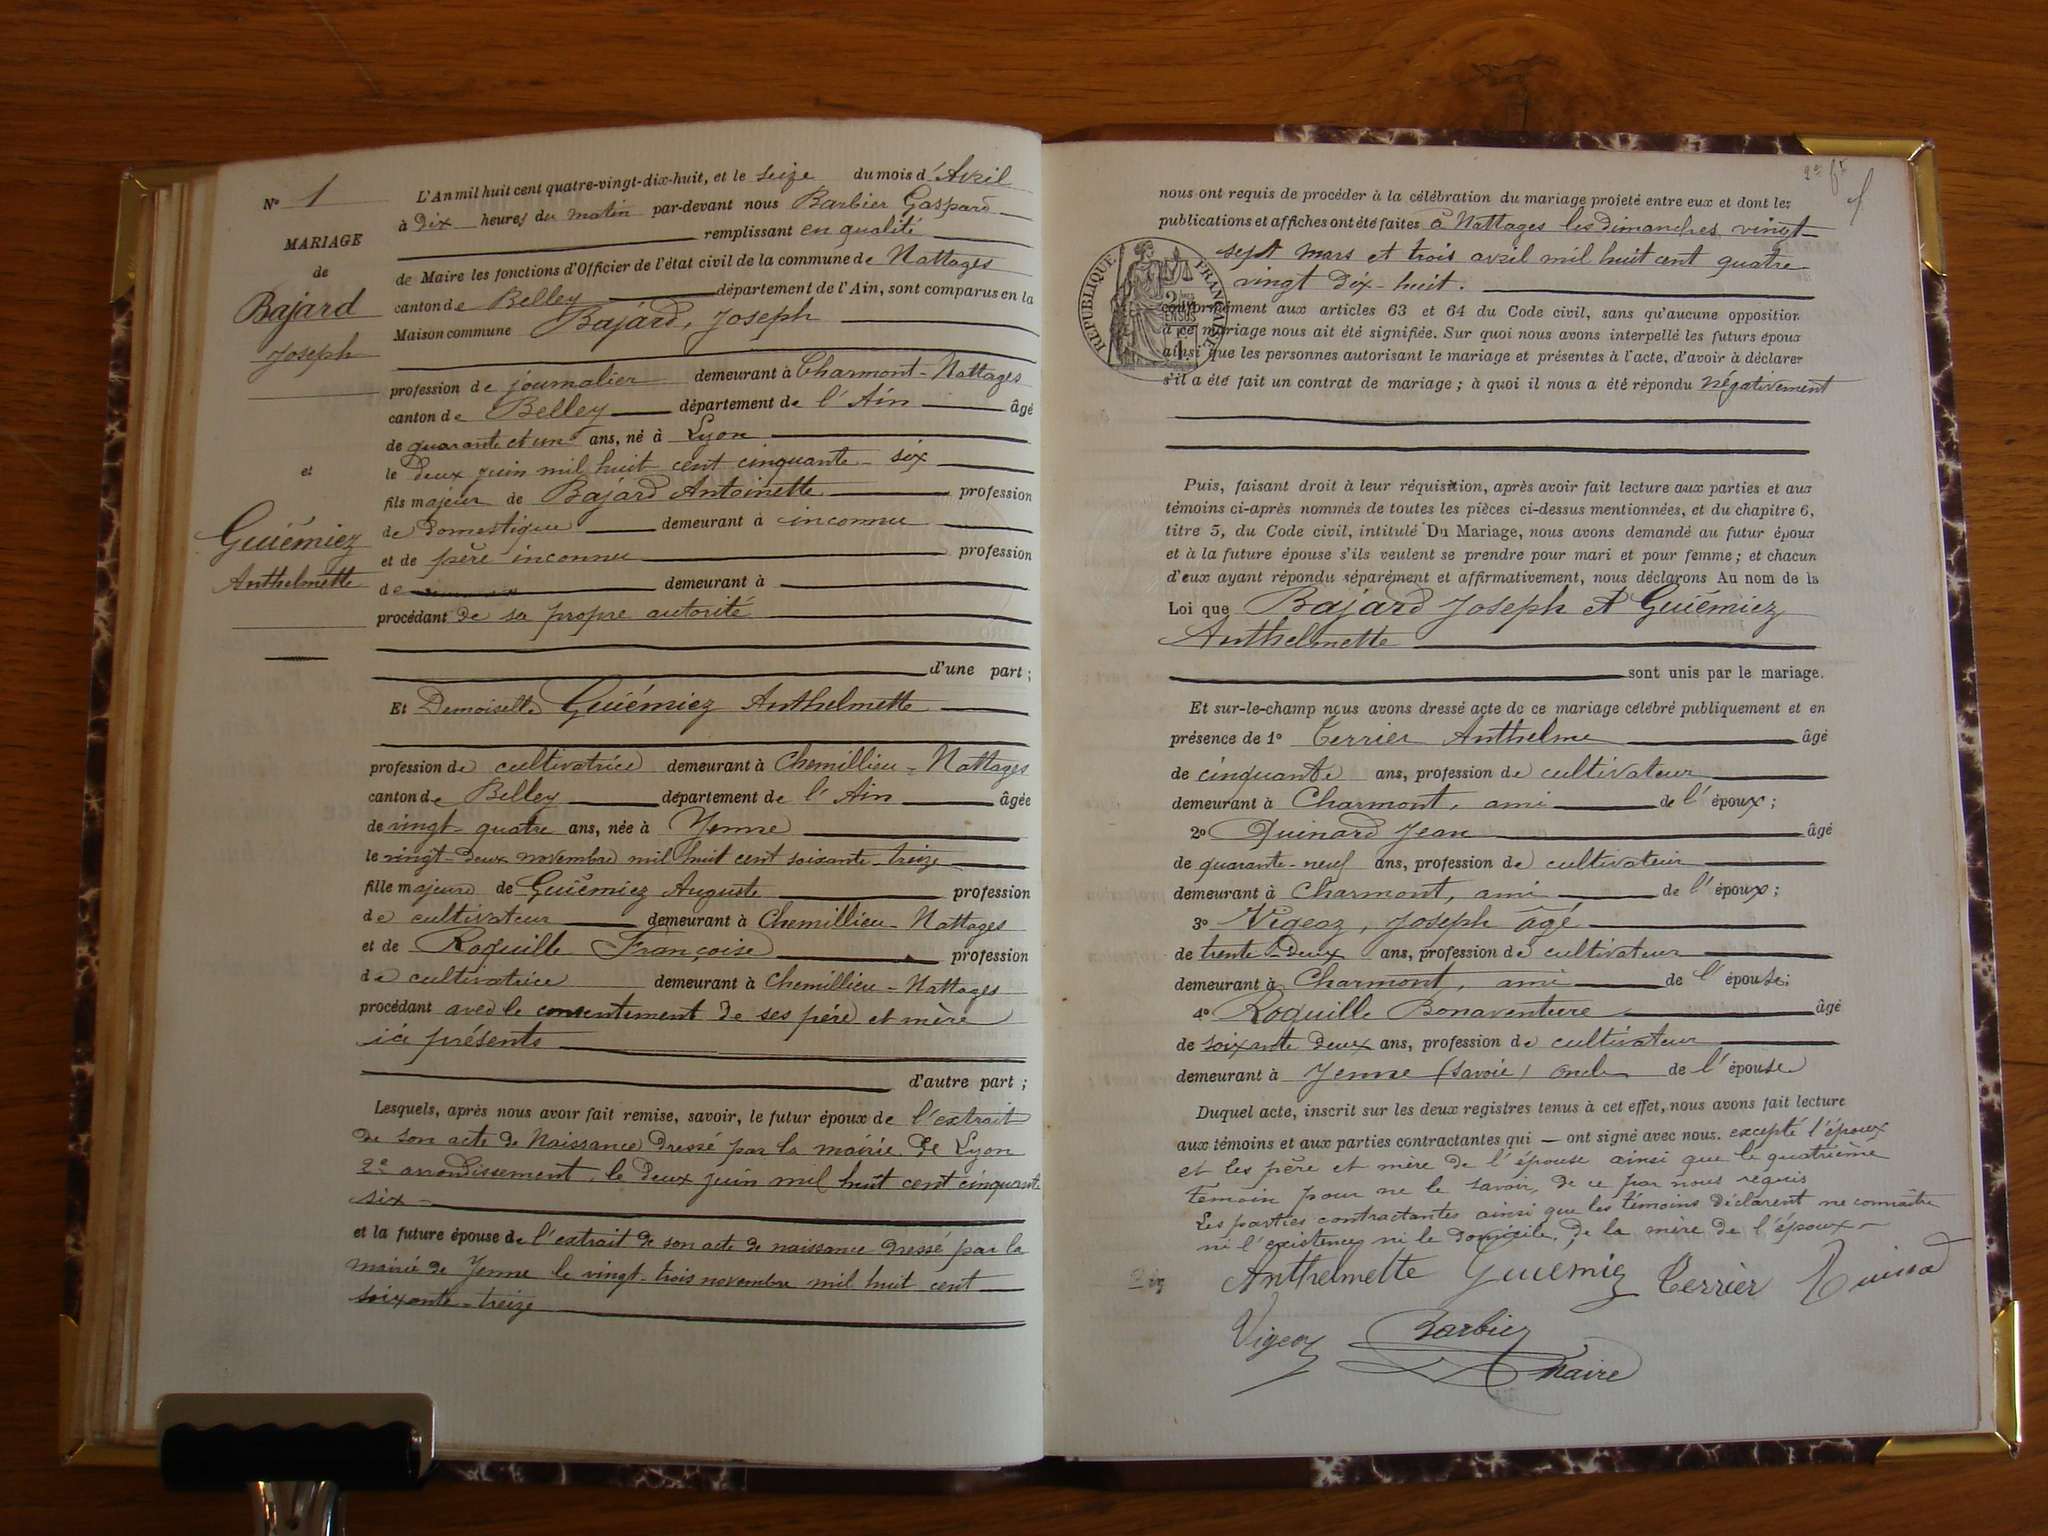 N° 1
MARIAGE
de
Bajard
Joseph
et
Guiémiez
Anthelmette
L'An mil huit cent quatre-vingt-dix-huit, et le seize du mois d'Avril
à Dix heures du matin par-devant nous Barbier Gaspard
remplissant en qualité
de Maire les fonctions d'Officier de l'état civil de la commune de Nattages
canton de Belley département de l'Ain, sont comparus en la
Maison commune Bajard, Joseph
profession de journalier demeurant à Charmont-Nattages
canton de Belley département de l'Ain âgé
de quarante et un ans, né à Lyon
le deux juin mil huit cent cinquante-six
fils majeur de Bajard Antoinette profession
de domestique demeurant à inconnu
et de père inconnu profession
de demeurant à
procédant de sa propre autorité
d'une part;
Et Demoiselle Guiémiez Anthelmette
profession de cultivatrice demeurant à Chemillieu-Nattages
canton de Belley département de l'Ain âgée
de vingt-quatre ans, née à Yenne
le vingt-deux novembre mil huit cent soixante-treize
fille majeure de Guiémiez Auguste profession
de cultivateur demeurant à Chemillieu-Nattages
et de Roquille Françoise profession
de cultivatrice demeurant à Chemillieu-Nattages
procédant avec le consentement de ses père et mère
ici présents
d'autre part;
Lesquels, après nous avoir fait remise, savoir, le futur époux de l'extrait
de son acte de Naissance dressé par la mairie de Lyon
2e arrondissement, le deux juin mil huit cent cinquante
six
et la future épouse de l'extrait de son acte de naissance dressé par la
mairie de Yenne le vingt-trois novembre mil huit cent
soixante-treize
nous ont requis de procéder à la célébration du mariage projeté entre eux et dont les
publications et affiches ont été faites à Nattages les dimanches vingt-
sept mars et trois avril mil huit cent quatre
vingt Dix-huit.
RÉPUBLIQUE FRANÇAISE
conformément aux articles 63 et 64 du Code civil, sans qu'aucune opposition
à ce mariage nous ait été signifiée. Sur quoi nous avons interpellé les futurs époux
ainsi que les personnes autorisant le mariage et présentes à l'acte, d'avoir à déclarer
s'il a été fait un contrat de mariage; à quoi il nous a été répondu négativement
Puis, faisant droit à leur réquisition, après avoir fait lecture aux parties et aux
témoins ci-après nommés de toutes les pièces ci-dessus mentionnées, et du chapitre 6,
titre 5, du Code civil, intitulé Du Mariage, nous avons demandé au futur époux
et à la future épouse s'ils veulent se prendre pour mari et pour femme; et chacun
d'eux ayant répondu séparément et affirmativement, nous déclarons Au nom de la
Loi que Bajard Joseph et Guiémiez
Anthelmette
sont unis par le mariage.
Et sur-le-champ nous avons dressé acte de ce mariage célébré publiquement et en
présence de 1° Terrier Anthelme âgé
de cinquante ans, profession de cultivateur
demeurant à Charmont, ami de l'époux;
2° Quinard Jean âgé
de quarante-neuf ans, profession de cultivateur
demeurant à Charmont, ami de l'époux;
3° Vigeoz, Joseph âgé
de trente-Deux ans, profession de cultivateur
demeurant à Charmont, ami de l'épouse;
4° Roquille Bonaventure âgé
de soixante deux ans, profession de cultivateur
demeurant à Yenne (Savoie) oncle de l'épouse
Duquel acte, inscrit sur les deux registres tenus à cet effet, nous avons fait lecture
aux témoins et aux parties contractantes qui — ont signé avec nous. excepté l'époux
et les père et mère de l'épouse ainsi que le quatrième
témoin pour ne le savoir, de ce par nous requis
Les parties contractantes ainsi que les témoins déclarent ne connaître
ni l'existence ni le domicile de la mère de l'époux
Anthelmette Guiemiez Terrier
Vigeoz Barbier
Maire